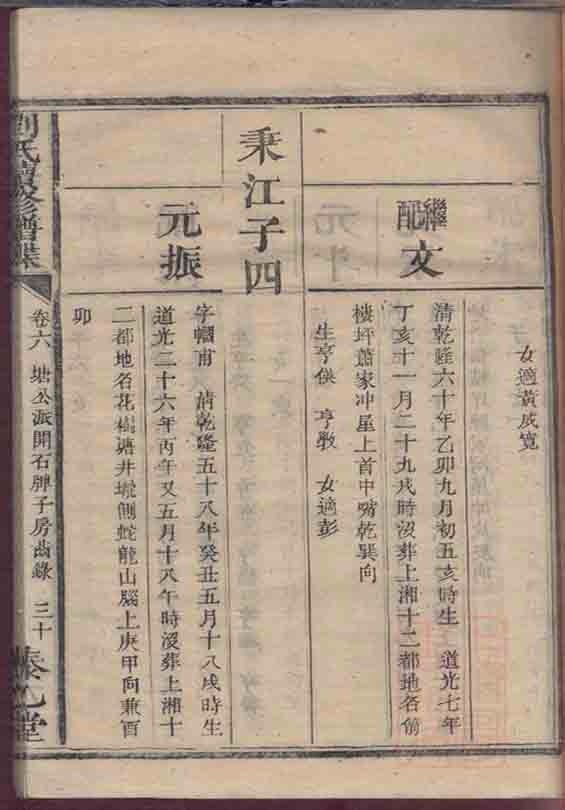 女適黃成寬
繼配文
清乾隆六十年乙卯九月初五亥時生 道光七年
丁亥十一月二十九戌時沒葬上湘十二都地名箭
樓坪蕭家冲屋上首中嘴乾巽向
生亨俁 亨斁 女適彭
秉江子四
元振
字幗甫 清乾隆五十八年癸丑五月十八戌時生
道光二十六年丙午又五月十八午時沒葬上湘十
二都地名花樹塘井塸側蛇龍山腦上庚甲向兼酉
卯
劉氏續修譜牒
卷六 塘公派開石牌子房齒錄 三十
泰乙堂